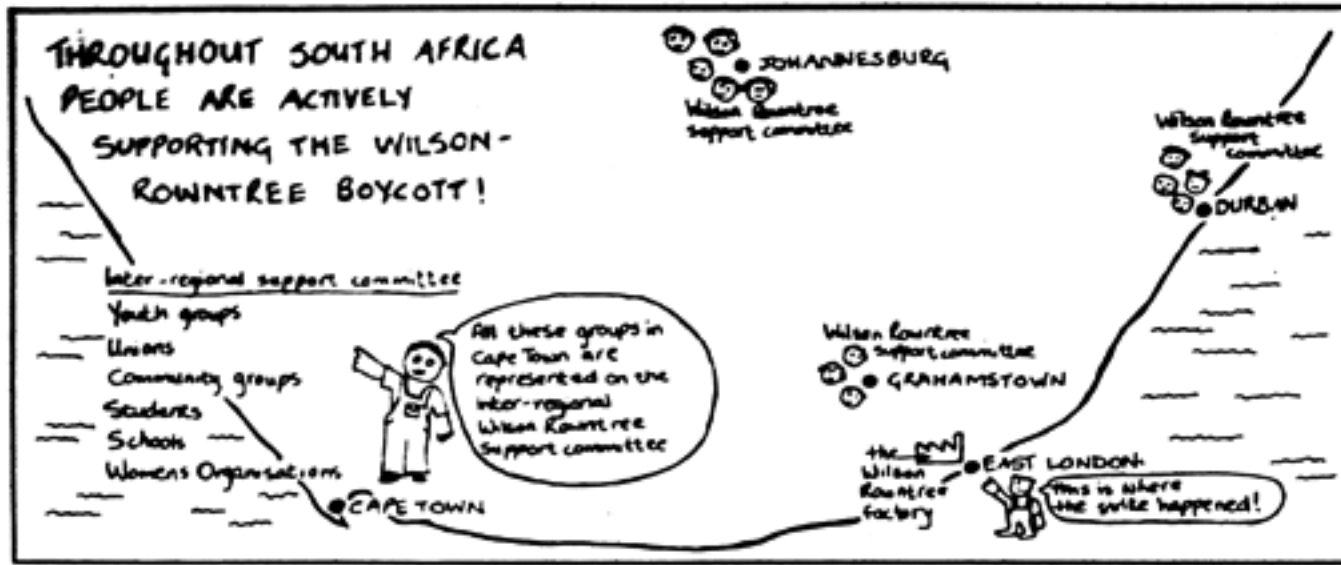 THROUGHOUT SOUTH AFRICA
PEOPLE ARE ACTIVELY
SUPPORTING THE WILSON-
ROWNTREE BOYCOTT!
JOHANNESBURG
Wilson Rowntree
support committee
Wilson Rowntree
Support
committee
DURBAN
Inter-regional support committee
Youth groups
Unions
Community groups
Students
Schools
Womens Organisations
CAPE TOWN
All these groups in
Cape Town are
represented on the
Inter-regional
Wilson Rowntree
Support committee
Wilson Rowntree
Support committee
GRAHAMSTOWN
the
Wilson
Rowntree
factory
EAST LONDON
This is where
the strike happened!